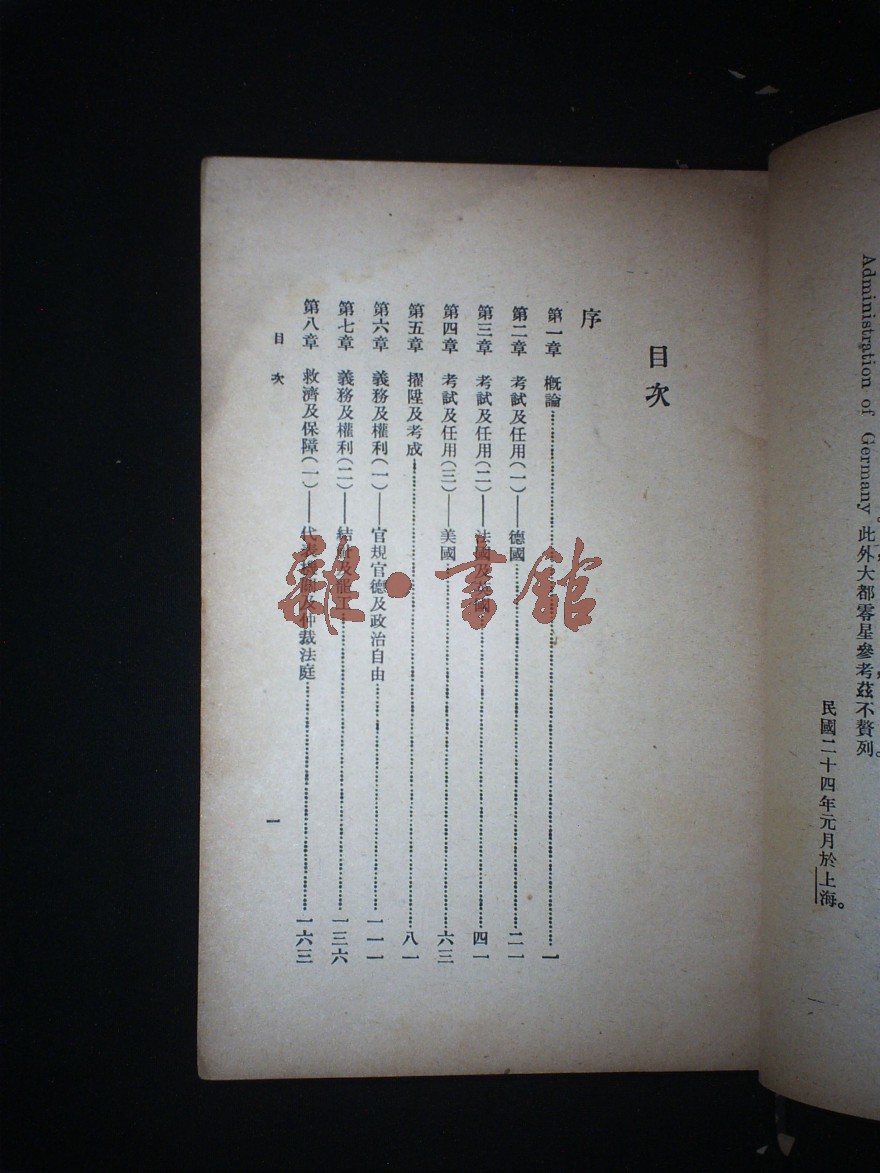 Administration of Germany。此外大都零星參考茲不贅列。
民國二十四年元月於上海。
一
目次
序
第一章 概論……一
第二章 考試及任用(一)——德國……二一
第三章 考試及任用(二)——法國及英國……四一
第四章 考試及任用(三)——美國……六三
第五章 擢陞及考成……八一
第六章 義務及權利(一)——官規官德及政治自由……一一一
第七章 義務及權利(二)——結社及罷工……一三六
第八章 救濟及保障(一)——代表機關及仲裁法庭……一六三
目次
一
雜·書館